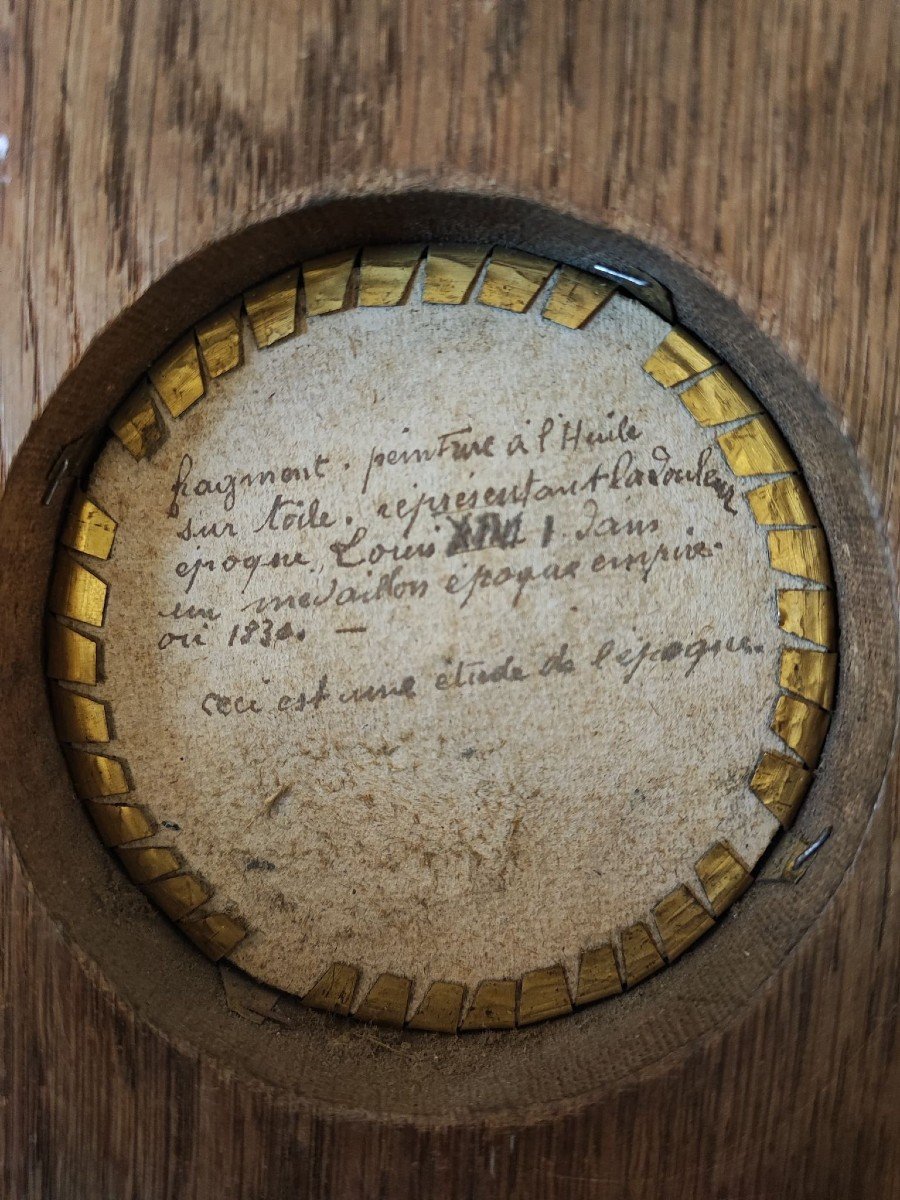 fragment. peinture à l'Huile
sur toile. représentant la douleur
époque Louis XIII dans
un medaillon époque empire.
où 1830. —
ceci est une étude de l'époque.